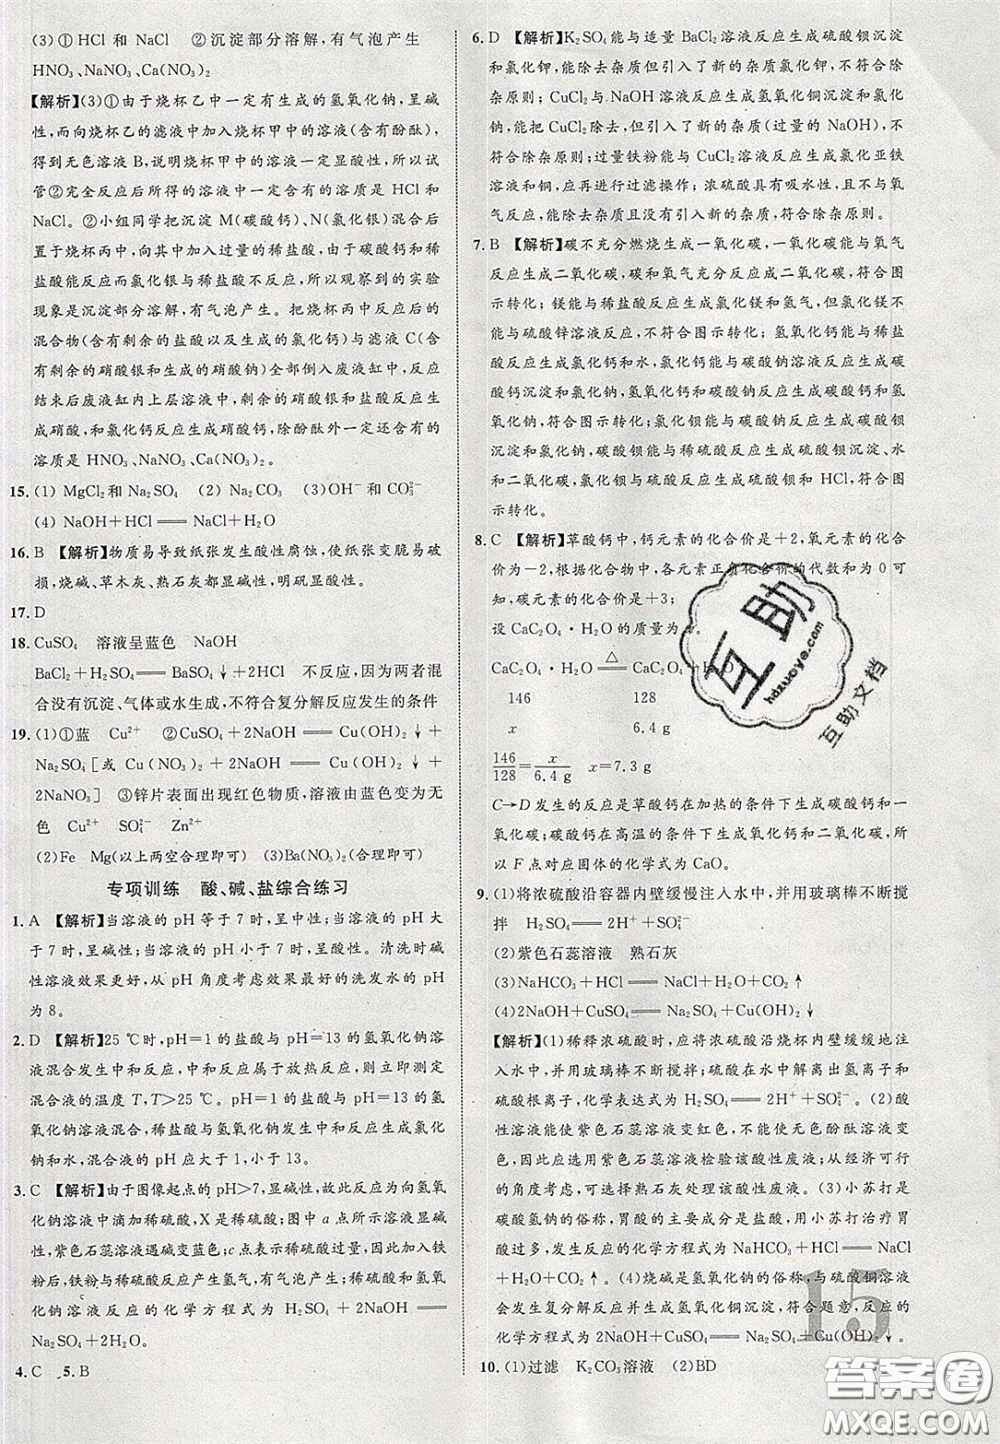 (3)①HCl 和 NaCl ②沉淀部分溶解,有气泡产生
HNO₃、NaNO₃、Ca(NO₃)₂
【解析】(3)①由于烧杯乙中一定有生成的氢氧化钠,呈碱
性,而向烧杯乙的滤液中加入烧杯甲中的溶液(含有酚酞),
得到无色溶液 B,说明烧杯甲中的溶液一定显酸性,所以试
管②完全反应后所得的溶液中一定含有的溶质是 HCl 和
NaCl。②小组同学把沉淀 M(碳酸钙)、N(氯化银)混合后
置于烧杯丙中,向其中加入过量的稀盐酸,由于碳酸钙和稀
盐酸反应而氯化银与稀盐酸不反应,所以观察到的实验
现象是沉淀部分溶解,有气泡产生。把烧杯丙中反应后的
混合物(含有剩余的盐酸以及生成的氯化钙)与滤液 C(含
有剩余的硝酸银和生成的硝酸钠)全部倒入废液缸中,反应
结束后废液缸内上层溶液中,剩余的硝酸银和盐酸反应生
成硝酸,和氯化钙反应生成硝酸钙,除酚酞外一定还含有的
溶质是 HNO₃、NaNO₃、Ca(NO₃)₂。
15. (1) MgCl₂和 Na₂SO₄ (2) Na₂CO₃ (3)OH⁻和 CO₃²⁻
(4) NaOH＋HCl══NaCl＋H₂O
16. B 【解析】物质易导致纸张发生酸性腐蚀,使纸张变脆易破
损,烧碱、草木灰、熟石灰都显碱性,明矾显酸性。
17. D
18. CuSO₄ 溶液呈蓝色 NaOH
BaCl₂＋H₂SO₄══BaSO₄↓＋2HCl 不反应,因为两者混
合没有沉淀、气体或水生成,不符合复分解反应发生的条件
19. (1)①蓝 Cu²⁺ ②CuSO₄＋2NaOH══Cu(OH)₂↓＋
Na₂SO₄[或 Cu(NO₃)₂＋2NaOH══Cu(OH)₂↓＋
2NaNO₃] ③锌片表面出现红色物质,溶液由蓝色变为无
色 Cu²⁺ SO₄²⁻ Zn²⁺
(2)Fe Mg(以上两空合理即可) (3)Ba(NO₃)₂(合理即可)
专项训练 酸、碱、盐综合练习
1. A 【解析】当溶液的 pH 等于 7 时,呈中性;当溶液的 pH 大
于 7 时,呈碱性;当溶液的 pH 小于 7 时,呈酸性。清洗时碱
性溶液效果更好,从 pH 角度考虑效果最好的洗发水的 pH
为 8。
2. D 【解析】25 ℃时,pH＝1 的盐酸与 pH＝13 的氢氧化钠溶
液混合发生中和反应,中和反应属于放热反应,则完全反应
后溶液的温度 T,T＞25 ℃。pH＝1 的盐酸与 pH＝13 的氢
氧化钠溶液混合,稀盐酸与氢氧化钠溶液反应生成氯化
钠和水,混合液的 pH 应大于 1,小于 13。
3. C 【解析】由于图像起点的 pH＞7,显碱性,故此反应为向氢氧
化钠溶液中滴加稀硫酸,X 是稀硫酸;图中 a 点所示溶液显碱
性,紫色石蕊溶液遇碱变蓝色;c 点表示硫酸过量,因此加入铁
粉后,铁粉与稀硫酸反应产生氢气,有气泡产生;稀硫酸和氢
氧化钠溶液反应的化学方程式为 H₂SO₄＋2NaOH══
Na₂SO₄＋2H₂O。
4. C 5. B
6. D 【解析】K₂SO₄能与适量 BaCl₂溶液反应生成硫酸钡沉淀
和氯化钾,能除去杂质但引入了新的杂质氯化钾,不符合除
杂原则;CuCl₂与 NaOH 溶液反应生成氢氧化铜沉淀和氯化
钠,能把 CuCl₂除去,但引入了新的杂质(过量的 NaOH),不
符合除杂原则;过量铁粉能与 CuCl₂溶液反应生成氯化亚铁
溶液和铜,应再进行过滤操作;浓硫酸具有吸水性,且不与氧
气反应,能除去杂质且没有引入新的杂质,符合除杂原则。
7. B 【解析】碳不充分燃烧生成一氧化碳,一氧化碳能与氧气
反应生成二氧化碳,碳和氧气充分反应生成二氧化碳,符合图
示转化;镁能与稀盐酸反应生成氯化镁和氢气,但氯化镁不
能与硫酸锌溶液反应,不符合图示转化;氢氧化钙能与稀盐
酸反应生成氯化钙和水,氯化钙能与碳酸钠溶液反应生成碳
酸钙沉淀和氯化钠,氢氧化钙和碳酸钠反应生成碳酸钙和氢
氧化钠,符合图示转化;氯化钡能与碳酸钠反应生成碳酸钡
沉淀和氯化钠,碳酸钡能与稀硫酸反应生成硫酸钡沉淀、水
和二氧化碳,氯化钡和硫酸反应生成硫酸钡和 HCl,符合图
示转化。
8. C 【解析】草酸钙中,钙元素的化合价是＋2,氧元素的化合
价为－2,根据化合物中,各元素正负化合价的代数和为 0 可
知,碳元素的化合价是＋3;
设 CaC₂O₄·H₂O 的质量为 x。
CaC₂O₄·H₂O══△══CaC₂O₄＋H₂O
146 128
x 6.4 g
146/128＝x/6.4 g x＝7.3 g
C→D 发生的反应是草酸钙在加热的条件下生成碳酸钙和一
氧化碳;碳酸钙在高温的条件下生成氧化钙和二氧化碳,所
以 F 点对应固体的化学式为 CaO。
9. (1)将浓硫酸沿容器内壁缓慢注入水中,并用玻璃棒不断搅
拌 H₂SO₄══2H⁺＋SO₄²⁻
(2)紫色石蕊溶液 熟石灰
(3)NaHCO₃＋HCl══NaCl＋H₂O＋CO₂↑
(4)2NaOH＋CuSO₄══Na₂SO₄＋Cu(OH)₂↓
【解析】(1)稀释浓硫酸时,应将浓硫酸沿烧杯内壁缓缓地注
入水中,并用玻璃棒不断搅拌;硫酸在水中解离出氢离子和
硫酸根离子,化学表达式为 H₂SO₄══2H⁺＋SO₄²⁻。(2)酸
性废液能使紫色石蕊溶液变红色,不能使无色酚酞溶液变
色,因此应使用紫色石蕊溶液检验该酸性废液;从经济可行
的角度考虑,可选择熟石灰处理该酸性废液。(3)小苏打是
碳酸氢钠的俗称,胃酸的主要成分是盐酸,用小苏打治疗胃
酸过多,发生反应的化学方程式为 NaHCO₃＋HCl══NaCl
＋H₂O＋CO₂↑。(4)烧碱是氢氧化钠的俗称,与硫酸铜溶液
会发生复分解反应并生成氢氧化铜沉淀,符合题意,反应的
化学方程式为 2NaOH＋CuSO₄══Na₂SO₄＋Cu(OH)₂↓。
10. (1)过滤 K₂CO₃溶液 (2)BD
15
互助
hdzuoye.com
互助文档
答案圈
MXQE.COM